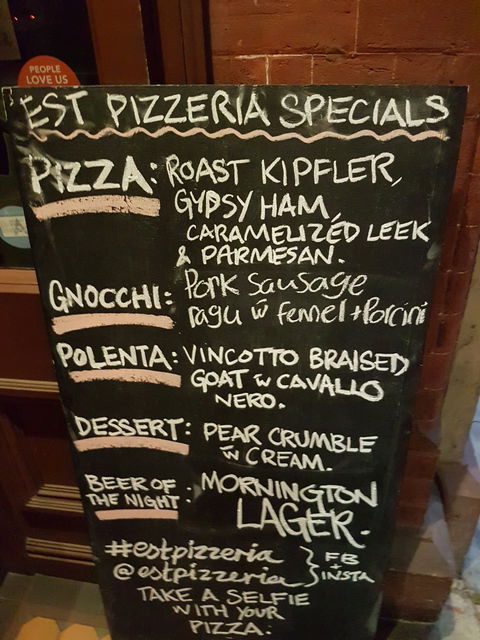 PEOPLE
LOVE US
EST PIZZERIA SPECIALS
PIZZA: ROAST KIPFLER,
GYPSY HAM,
CARAMELIZED LEEK
& PARMESAN.
GNOCCHI: Pork Sausage
ragu w fennel + Porcini
POLENTA: VINCOTTO BRAISED
GOAT w CAVALLO
NERO.
DESSERT: PEAR CRUMBLE
w CREAM.
BEER OF
THE NIGHT: MORNINGTON
LAGER.
#estpizzeria
@estpizzeria } FB
+
INSTA
TAKE A SELFIE
WITH YOUR
PIZZA: